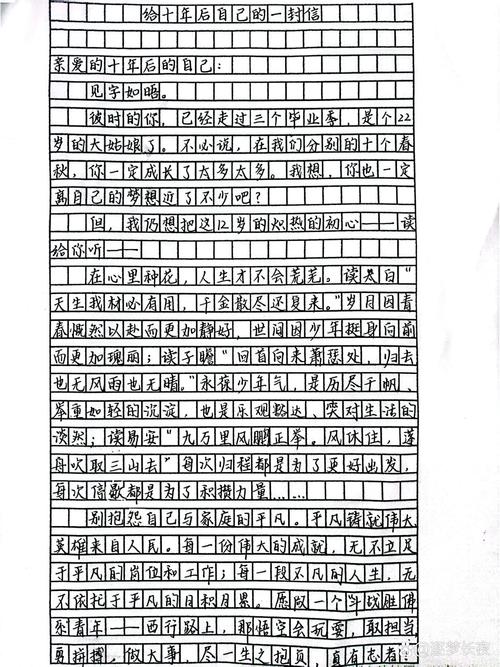 给十年后自己的一封信
亲爱的十年后的自己：
见字如晤。
彼时的你，已经走过三个毕业季，是个22
岁的大姑娘了。不必说，在我们分别的十个春
秋，你一定成长了太多太多。我想，你也一定
离自己的梦想近了不少吧？
但，我仍想把这12岁的炽热的初心——读
给你听——
在心里种花，人生才不会荒芜。读太白“
天生我材必有用，千金散尽还复来。”岁月因青
春慨然以赴而更加静好，世间因少年挺身向前
而更加瑰丽；读子瞻“回首向来萧瑟处，归去
也无风雨也无晴。”永葆少年气，是历尽千帆、
举重如轻的沉淀，也是乐观豁达、笑对生活的
淡然；读易安“九万里风鹏正举。风休住，蓬
舟吹取三山去”每次归程都是为了更好出发，
每次停歇都是为了积攒力量……
别抱怨自己与家庭的平凡。平凡铸就伟大，
英雄来自人民。每一份伟大的成就，无不立足
于平凡的岗位和工作；每一段不凡的人生，无
不依托于平凡的日积月累。愿做一个“斗战胜佛
系青年——西行路上，那悟空会玩耍，敢担当
勇拼搏，做大事，尽一生之抱负，真有志者